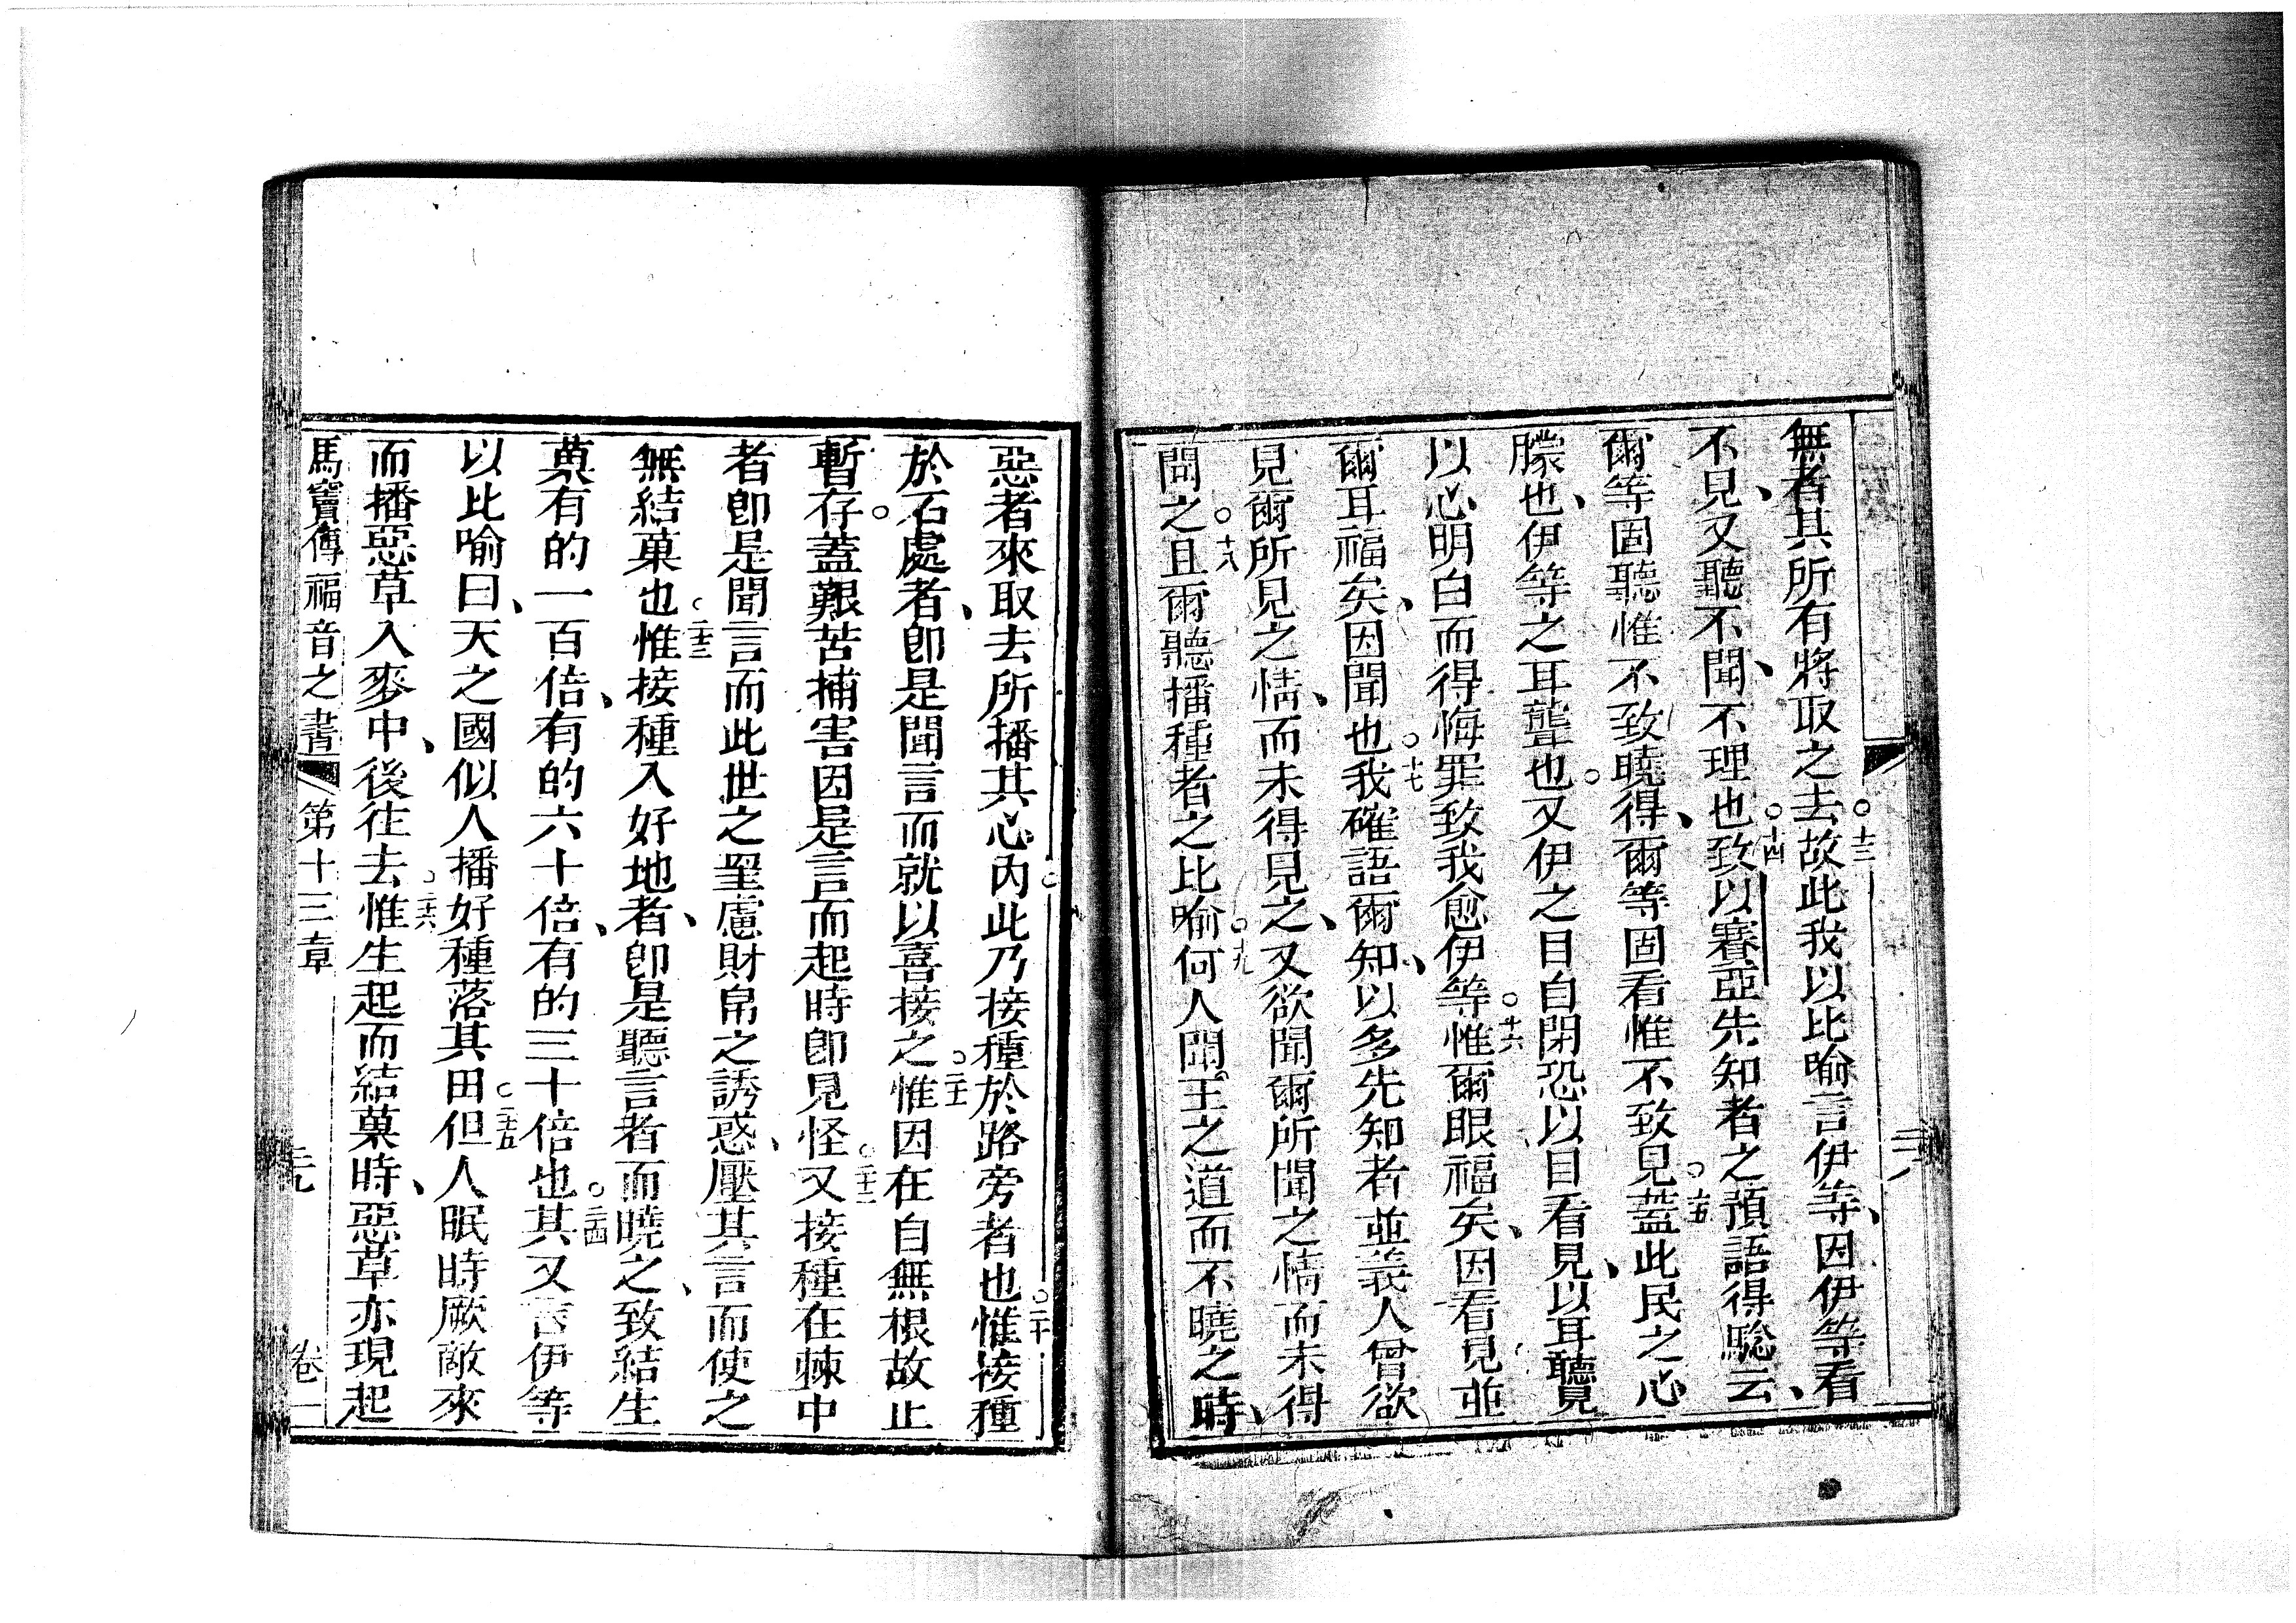 無者其所有將取之去。十三故此我以比喻言伊等、因伊等看
不見、又聽不聞、不理也。十四致以賽亞先知者之預語得騐云、
爾等固聽惟不致曉得、爾等固看惟不致見。十五蓋此民之心
朦也、伊等之耳聾也。又伊之目自閉恐以目看見、以耳聽見
以心明白而得悔罪致我愈伊等。十六惟爾眼福矣、因看見並
爾耳福矣、因聞也。十七我確語爾知、以多先知者並義人曾欲
見爾所見之情、而未得見之、又欲聞爾所聞之情而未得
聞之。十八且爾聽播種者之比喻。十九何人聞王之道而不曉之時、
惡者來取去所播其心內此乃接種於路旁者也。二十惟接種
於石處者、卽是聞言而就以喜接之。二十一惟因在自無根故止
暫存。蓋艱苦捕害因是言而起時卽見怪。二十二又接種在棘中
者卽是聞言而此世之罣慮財帛之誘惑、壓其言而使之
無結菓也。二十三惟接種入好地者、卽是聽言者而曉之、致結生
菓有的一百倍、有的六十倍、有的三十倍也。二十四其又言伊等
以比喻曰、天之國似人播好種落其田。二十五但人眠時厥敵來
而播惡草入麥中、後往去。二十六惟生起而結菓時、惡草亦現起
馬竇傳福音之書 第十三章 三九 卷一